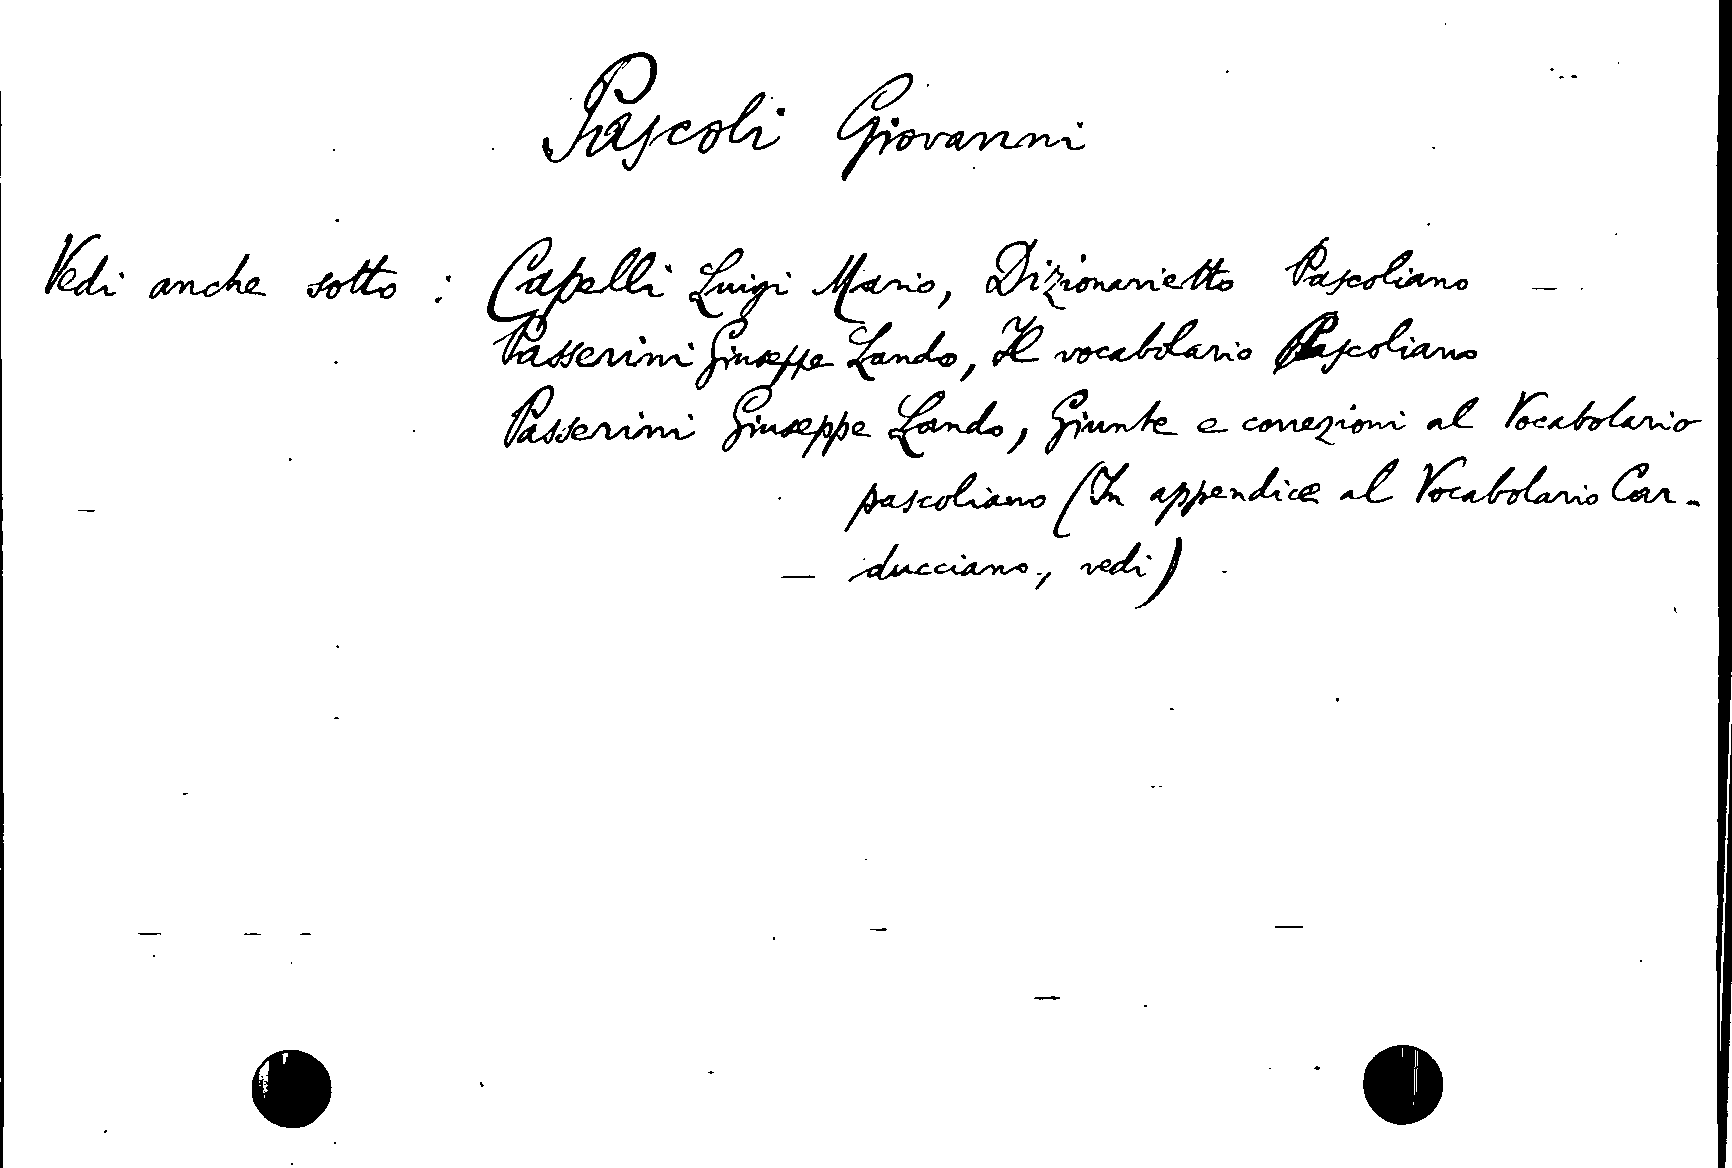 Pascoli Giovanni
Vedi anche sotto : Capelli Luigi Mario, Dizionarietto Pascoliano
Passerini Giuseppe Lando, Il vocabolario Pascoliano
Passerini Giuseppe Lando, Giunte e correzioni al Vocabolario
pascoliano (In appendice al Vocabolario Car-
ducciano, vedi)